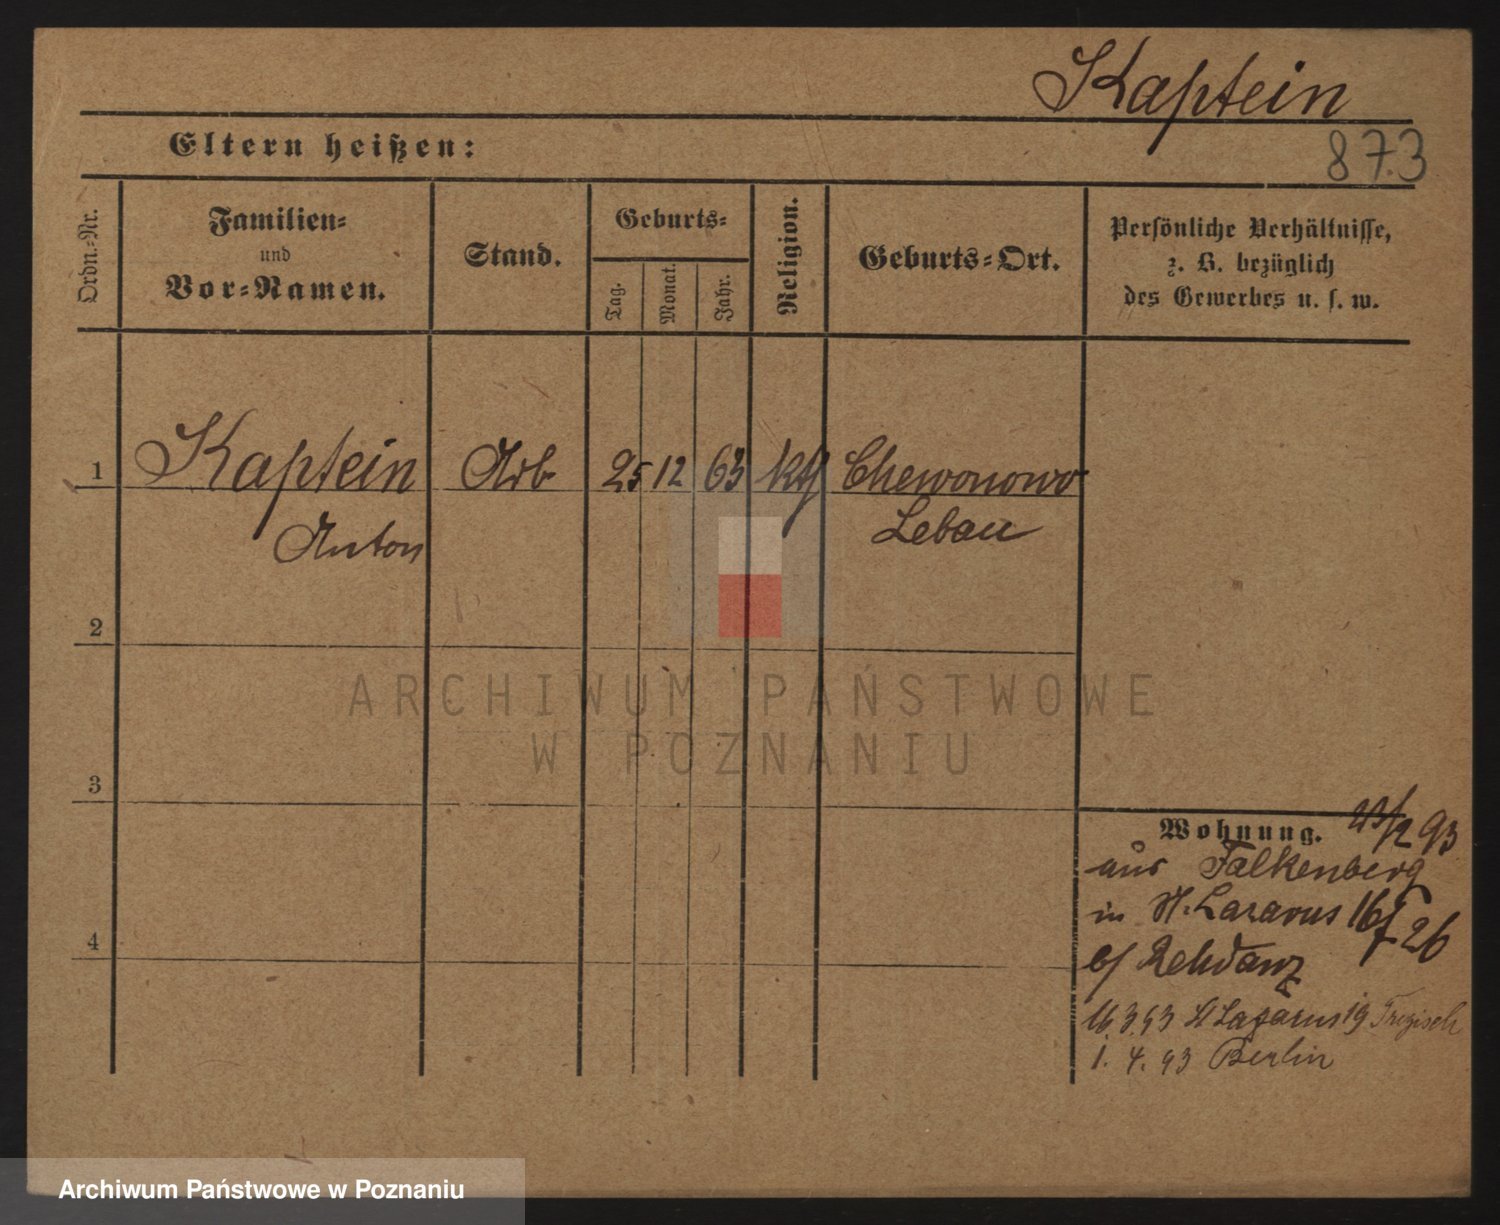 Kaptein
873
Eltern heißen:
Ordn.-Nr.
Familien-
und
Vor-Namen.
Stand.
Geburts-
Tag.
Monat.
Jahr.
Religion.
Geburts-Ort.
Persönliche Verhältnisse,
z. B. bezüglich
des Gewerbes u. s. w.
1 Kaptein Arb 25 12 63 kth Chewonowo
Anton Lebau
2
3
4
Wohnung. 23/2 93
aus Falkenberg
in St. Lazarus 16
26
b/ Rehdanz
16.3.93 St Lazarus 19
1. 4. 93 Berlin
ARCHIWUM PAŃSTWOWE
W POZNANIU
Archiwum Państwowe w Poznaniu